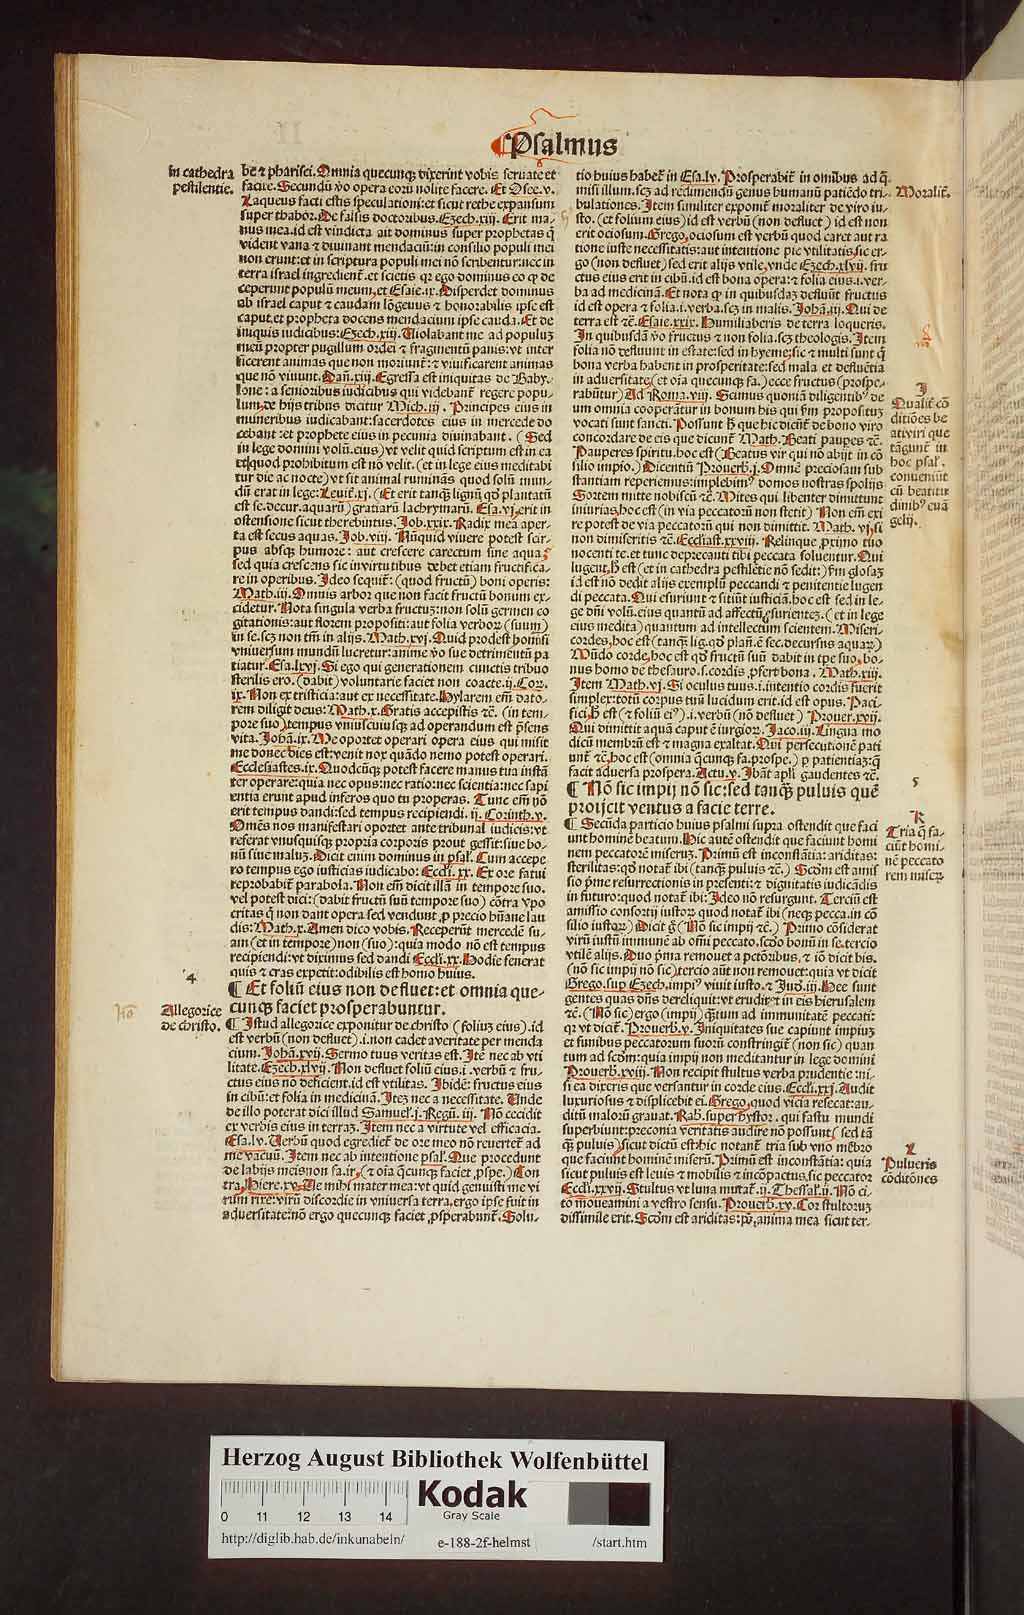 Psalmus
in cathedra
pestilentie.
be ⁊ pharisei. Omnia quecunq̃ dixerint vobis seruate et
facite. Secundũ ṽo opera eorũ nolite facere. Et Osee.v.
Laqueus facti estis speculationi: et sicut rethe expansum
super thabor. De falsis doctoribus. Ezech.xiij. Erit ma-
nus mea. id est vindicta ait dominus super prophetas q̃
vident vana ⁊ diuinant mendaciũ: in consilio populi mei
non erunt: et in scriptura populi mei nõ scribentur: nec in
terra israel ingredient̃. et scietis qr ego dominus eo ꝙ de
ceperunt populũ meum, et Esaie.ix. Disperdet dominus
ab israel caput ⁊ caudam lõgeuus ⁊ honorabilis ipse est
caput. et propheta docens mendacium ipse cauda. Et de
iniquis iudicibus: Ezech.xiij. Uiolabant me ad populuʒ
meũ propter pugillum ordei ⁊ fragmentũ panis: vt inter
ficerent animas que non moriunt̃: ⁊ viuificarent animas
que nõ viuunt. Dañ.xiij. Egressa est iniquitas de Baby-
lone: a senioribus iudicibus qui videbant̃ regere popu-
lum, de hijs tribus dicitur Mich.iij. Principes eius in
muneribus iudicabant: sacerdotes eius in mercede do
cebant: et prophete eius in pecunia diuinabant. (Sed
in lege domini volũ.eius) vt velit quid scriptum est in ea
et quod prohibitum est nõ velit. (et in lege eius meditabi
tur die ac nocte) vt sit animal ruminãs quod solũ mun-
dũ erat in lege: Leuit̃.xj. (Et erit tanq̃ lignũ qd̃ plantatũ
est se.decur.aquarũ) gratiarũ lachrymarũ. Esa.vj. erit in
ostensione sicut therebintus. Job.xxix. Radix mea aper-
ta est secus aquas. Job.viij. Nũquid viuere potest scir-
pus absq̃ humore: aut crescere carectum sine aqua.
sed quia crescens sic in virtutibus debet etiam fructifica-
re in operibus. Ideo sequit̃: (quod fructũ) boni operis:
Math.iij. Omnis arbor que non facit fructũ bonum ex-
cidetur. Nota singula verba fructuʒ: non solũ germen co
gitationis: aut florem propositi: aut folia verboꝝ (suum)
in se. scʒ non tm̃ in alijs. Math.xvj. Quid prodest homini
vniuersum mundũ lucretur: anime ṽo sue detrimentũ pa
tiatur. Esa.lxvj. Si ego qui generationem cunctis tribuo
sterilis ero. (dabit) voluntarie faciet non coacte. ij. Cor.
ix. Non ex tristicia: aut ex necessitate. Hylarem em̃ dato-
rem diligit deus: Math.x. Gratis accepistis ⁊c̃. (in tem-
pore suo) tempus vniuscuiusq̃ ad operandum est p̃sens
vita. Johã.ix. Me oportet operari opera eius qui misit
me donec dies est: venit nox quãdo nemo potest operari.
Ecclesiastes.ix. Quodcũq̃ potest facere manus tua instã
ter operare: quia nec opus: nec ratio: nec scientia: nec sapi
entia erunt apud inferos quo tu properas. Tunc em̃ nõ
erit tempus dandi: sed tempus recipiendi. ij. Corinth.v.
Omẽs nos manifestari oportet ante tribunal iudicis: vt
referat vnusquisq̃ propria corporis prout gessit: siue bo-
nũ siue maluʒ. Dicit enim dominus in psal. Cum accepe
ro tempus ego iusticias iudicabo: Eccl̃i.xx. Et ore fatui
reprobabit̃ parabola. Non em̃ dicit illã in tempore suo.
vel potest dici: (dabit fructũ suũ tempore suo) cõtra ypo
critas q̃ non dant opera sed vendunt ꝓ precio hũane lau
dis: Math.x. Amen dico vobis. Receperũt mercedẽ su-
am (et in tempore) non (suo): quia modo nõ est tempus
recipiendi: vt diximus sed dandi Eccl̃i.xx. Hodie fenerat
quis ⁊ cras expetit: odibilis est homo huius.
4
¶ Et foliũ eius non defluet: et omnia que-
cunq̃ faciet prosperabuntur.
Allegorice
de christo.
¶ Istud allegorice exponitur de christo (foliuʒ eius). id
est verbũ (non defluet). i. non cadet a veritate per menda
cium. Johã.xvij. Sermo tuus veritas est. Itẽ nec ab vti
litate. Ezech.xlvij. Non defluet foliũ eius. i. verbũ ⁊ fru-
ctus eius nõ deficient. id est vtilitas. Ibidẽ: fructus eius
in cibũ: et folia in medicinã. Iteʒ nec a necessitate. Unde
de illo poterat dici illud Samuel.j. Regũ.iij. Nõ cecidit
ex verbis eius in terraʒ. Item nec a virtute vel efficacia.
Esa.lv. Uerbũ quod egrediet̃ de ore meo nõ reuertet̃ ad
me vacuũ. Item nec ab intentione psal. Que procedunt
de labijs meis non fa.ir. (⁊ oĩa q̃cunq̃ faciet ꝓspe.) Con
tra, Hiere.xv. Ue mihi mater mea: vt quid genuisti me vi
rum rixe: virũ discordie in vniuersa terra. ergo ipse fuit in
aduersitate: nõ ergo quecunq̃ faciet ꝓsperabunt̃. Solu-
tio huius habet̃ in Esa.lv. Prosperabit̃ in omnibus ad q̃
misi illum. scʒ ad redimendũ genus humanũ patiẽdo tri-
bulationes. Item similiter exponit̃ moraliter de viro iu-
sto. (et folium eius) id est verbũ (non defluet) id est non
erit ociosum. Grego, ociosum est verbũ quod caret aut ra
tione iuste necessitatis: aut intentione pie vtilitatis, sic er-
go (non defluet) sed erit alijs vtile, vnde Ezech.xlvij. fru
ctus eius erit in cibũ. id est bona opera: ⁊ folia eius. i. ver-
ba ad medicinã. Et nota ꝙ in quibusdaʒ defluũt fructus
id est opera ⁊ folia. i. verba. scʒ in malis. Johã.iij. Qui de
terra est ⁊c̃. Esaie.xxix. Humiliaberis de terra loqueris.
In quibusdã ṽo fructus ⁊ non folia: scʒ theologis. Item
folia nõ defluunt in estate: sed in hyeme, sic ⁊ multi sunt q̃
bona verba habent in prosperitate: sed mala et defluẽtia
in aduersitate (et oĩa quecunq̃ fa.) ecce fructus (prospe-
rabũtur) Ad Roma.viij. Scimus quoniã diligentib9 de
um omnia cooperãtur in bonum his qui s̃m propositũʒ
vocati sunt sancti. Possunt h̃ que hic dicũt̃ de bono viro
concordare de eis que dicunt̃ Math. Beati paup̃es ⁊c̃.
Pauperes spiritu. hoc est (Beatus vir qui nõ abijt in cõ
silio impio.) Dicentiũ Prouerb.j. Omnẽ preciosam sub
stantiam reperiemus: implebim9 domos nostras spolijs
Sortem mitte nobiscũ ⁊c̃. Mites qui libenter dimittunt
iniurias, hoc est (in via peccatorũ non stetit) Non em̃ exi
re potest de via peccatorũ qui non dimittit. Math.vj. si
non dimiseritis ⁊c̃. Eccl̃iast.xxviij. Relinque ꝓximo tuo
nocenti te. et tunc deprecanti tibi peccata soluentur. Qui
lugent, h̃ est (et in cathedra pestilẽtie nõ sedit:) s̃m glosaʒ
id est nõ dedit alijs exemplũ peccandi ⁊ penitentie lugen
di peccata. Qui esuriunt ⁊ sitiũt iusticiã. hoc est sed in le-
ge dñi volũ.eius quantũ ad affectũ esurienteʒ. (et in lege
eius medita) quantum ad intellectum scientem. Miseri-
cordes, hoc est (tanq̃ lig. qd̃ plañ.ẽ sec.decursus aquaꝝ)
Mũdo corde, hoc est qd̃ fructũ suũ dabit in tp̃e suo, bo-
nus homo de thesauro. s. cordis ꝓfert bona. Math.xiij.
Item Math.vj. Si oculus tuus. i. intentio cordis fuerit
simplex: totũ corpus tuũ lucidum erit. id est opus. Paci-
fici, h̃ est (⁊ foliũ ei9). i. verbũ (nõ defluet) Prouer.xvij.
Qui dimittit aquã caput ẽ iurgioꝝ. Jaco.iij. Lingua mo
dicũ membrũ est ⁊ magna exaltat. Qui persecutionẽ pati
unt̃ ⁊c̃, hoc est (omnia q̃cunq̃ fa.prospe.) ꝓ patientiaʒ: q̃
facit aduersa prospera. Actu.v. Ibãt apl̃i gaudentes ⁊c̃.
¶ Nõ sic impij nõ sic: sed tanq̃ puluis quẽ
proijcit ventus a facie terre.
¶ Secũda particio huius psalmi supra ostendit que faci
unt hominẽ beatum. Hic autẽ ostendit que faciunt homi
nem peccatorẽ miseruʒ. Primũ est inconstãtia: ariditas:
sterilitas: qd̃ notat̃ ibi (tanq̃ puluis ⁊c̃.) Scd̃m est amis
sio p̃me resurrectionis in presenti: ⁊ dignitatis iudicãdis
in futuro: quod notat̃ ibi: Ideo nõ resurgunt. Terciũ est
amissio consortij iustoꝝ quod notat̃ ibi (neq̃ pecca. in cõ
silio iustoꝝ) Dicit g̃ (Nõ sic impij ⁊c̃.) Primo cõsiderat
virũ iustũ immunẽ ab om̃i peccato. scd̃o bonũ in se. tercio
vtilẽ alijs. Duo p̃ma remouet a pctõribus, ⁊ iõ dicit bis.
(nõ sic impij nõ sic) tercio aũt non remouet: quia vt dicit
Grego.sup Ezech. impi9 viuit iusto. ⁊ Jud̃.iij. Hec sunt
gentes quas dñs dereliquit: vt erudiret̃ in eis hierusalem
⁊c̃. (Nõ sic) ergo (impij) q̃tum ad immunitatẽ peccati:
qr vt dicit̃. Prouerb.v. Iniquitates sue capiunt impiuʒ
et funibus peccatorum suorũ constringit̃ (non sic) quan
tum ad scd̃m: quia impij non meditantur in lege domini
Prouerb.xviij. Non recipit stultus verba prudentie: ni-
si ea dixeris que versantur in corde eius. Eccl̃i.xxj. Audit
luxuriosus ⁊ displicebit ei. Grego, quod vicia resecat: au-
ditũ maloꝝ grauat. Rab.super hystor. qui fastu mundi
superbiunt: preconia veritatis audire nõ possunt (sed tã
q̃ puluis) sicut dictũ est: hic notant̃ tria sub vno mẽbro
que faciunt hominẽ miserũ. Primũ est inconstãtia: quia
sicut puluis est leuis ⁊ mobilis ⁊ incõpactus, sic peccator
Eccl̃i.xxvij. Stultus vt luna mutat̃. ij. Thessal.ij. Nõ ci-
to moueamini a vestro sensu. Prouerb.xv. Cor stultoruʒ
dissimile erit. Scd̃m est ariditas: ps̃, anima mea sicut ter-
Moralit̃.
I
Qualit̃ cõ
ditiões be
atiuiri que
tãgunt̃ in
hoc psal.
conueniũt
cũ beatitu
dinib9 euã
gelij.
5
K
Tria q̃ fa-
ciũt homi-
nẽ peccato
rem miseꝝ
L
Pulueris
cõditões
Herzog August Bibliothek Wolfenbüttel
0 11 12 13 14
Kodak
Gray Scale
http://diglib.hab.de/inkunabeln/ e-188-2f-helmst /start.htm